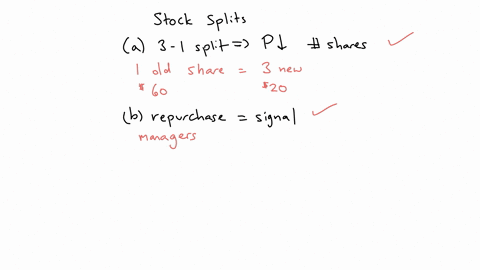 Stock Splits
(a) 3-1 split => P↓ # shares ✓
1 old share = 3 new
$60 $20
(b) repurchase = signal ✓
managers